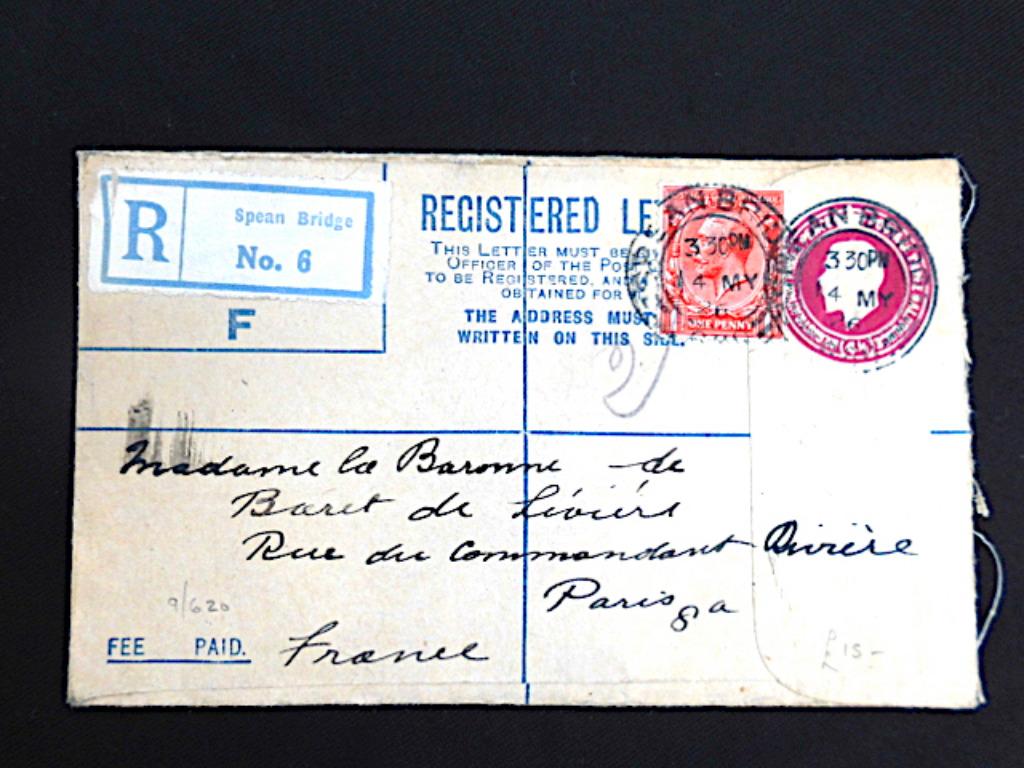 R
Spean Bridge
No. 6
F
REGISTERED LE
THIS LETTER MUST BE
OFFICER OF THE POS
TO BE REGISTERED, AND
OBTAINED FOR
THE ADDRESS MUST
WRITTEN ON THIS
3 30PM
4 MY
ONE PENNY
3 30PM
4 MY
Madame la Baronne de
Baret de
Rue du Commandant Rivière
Paris 8a
9/620
FEE PAID.
France
£15-